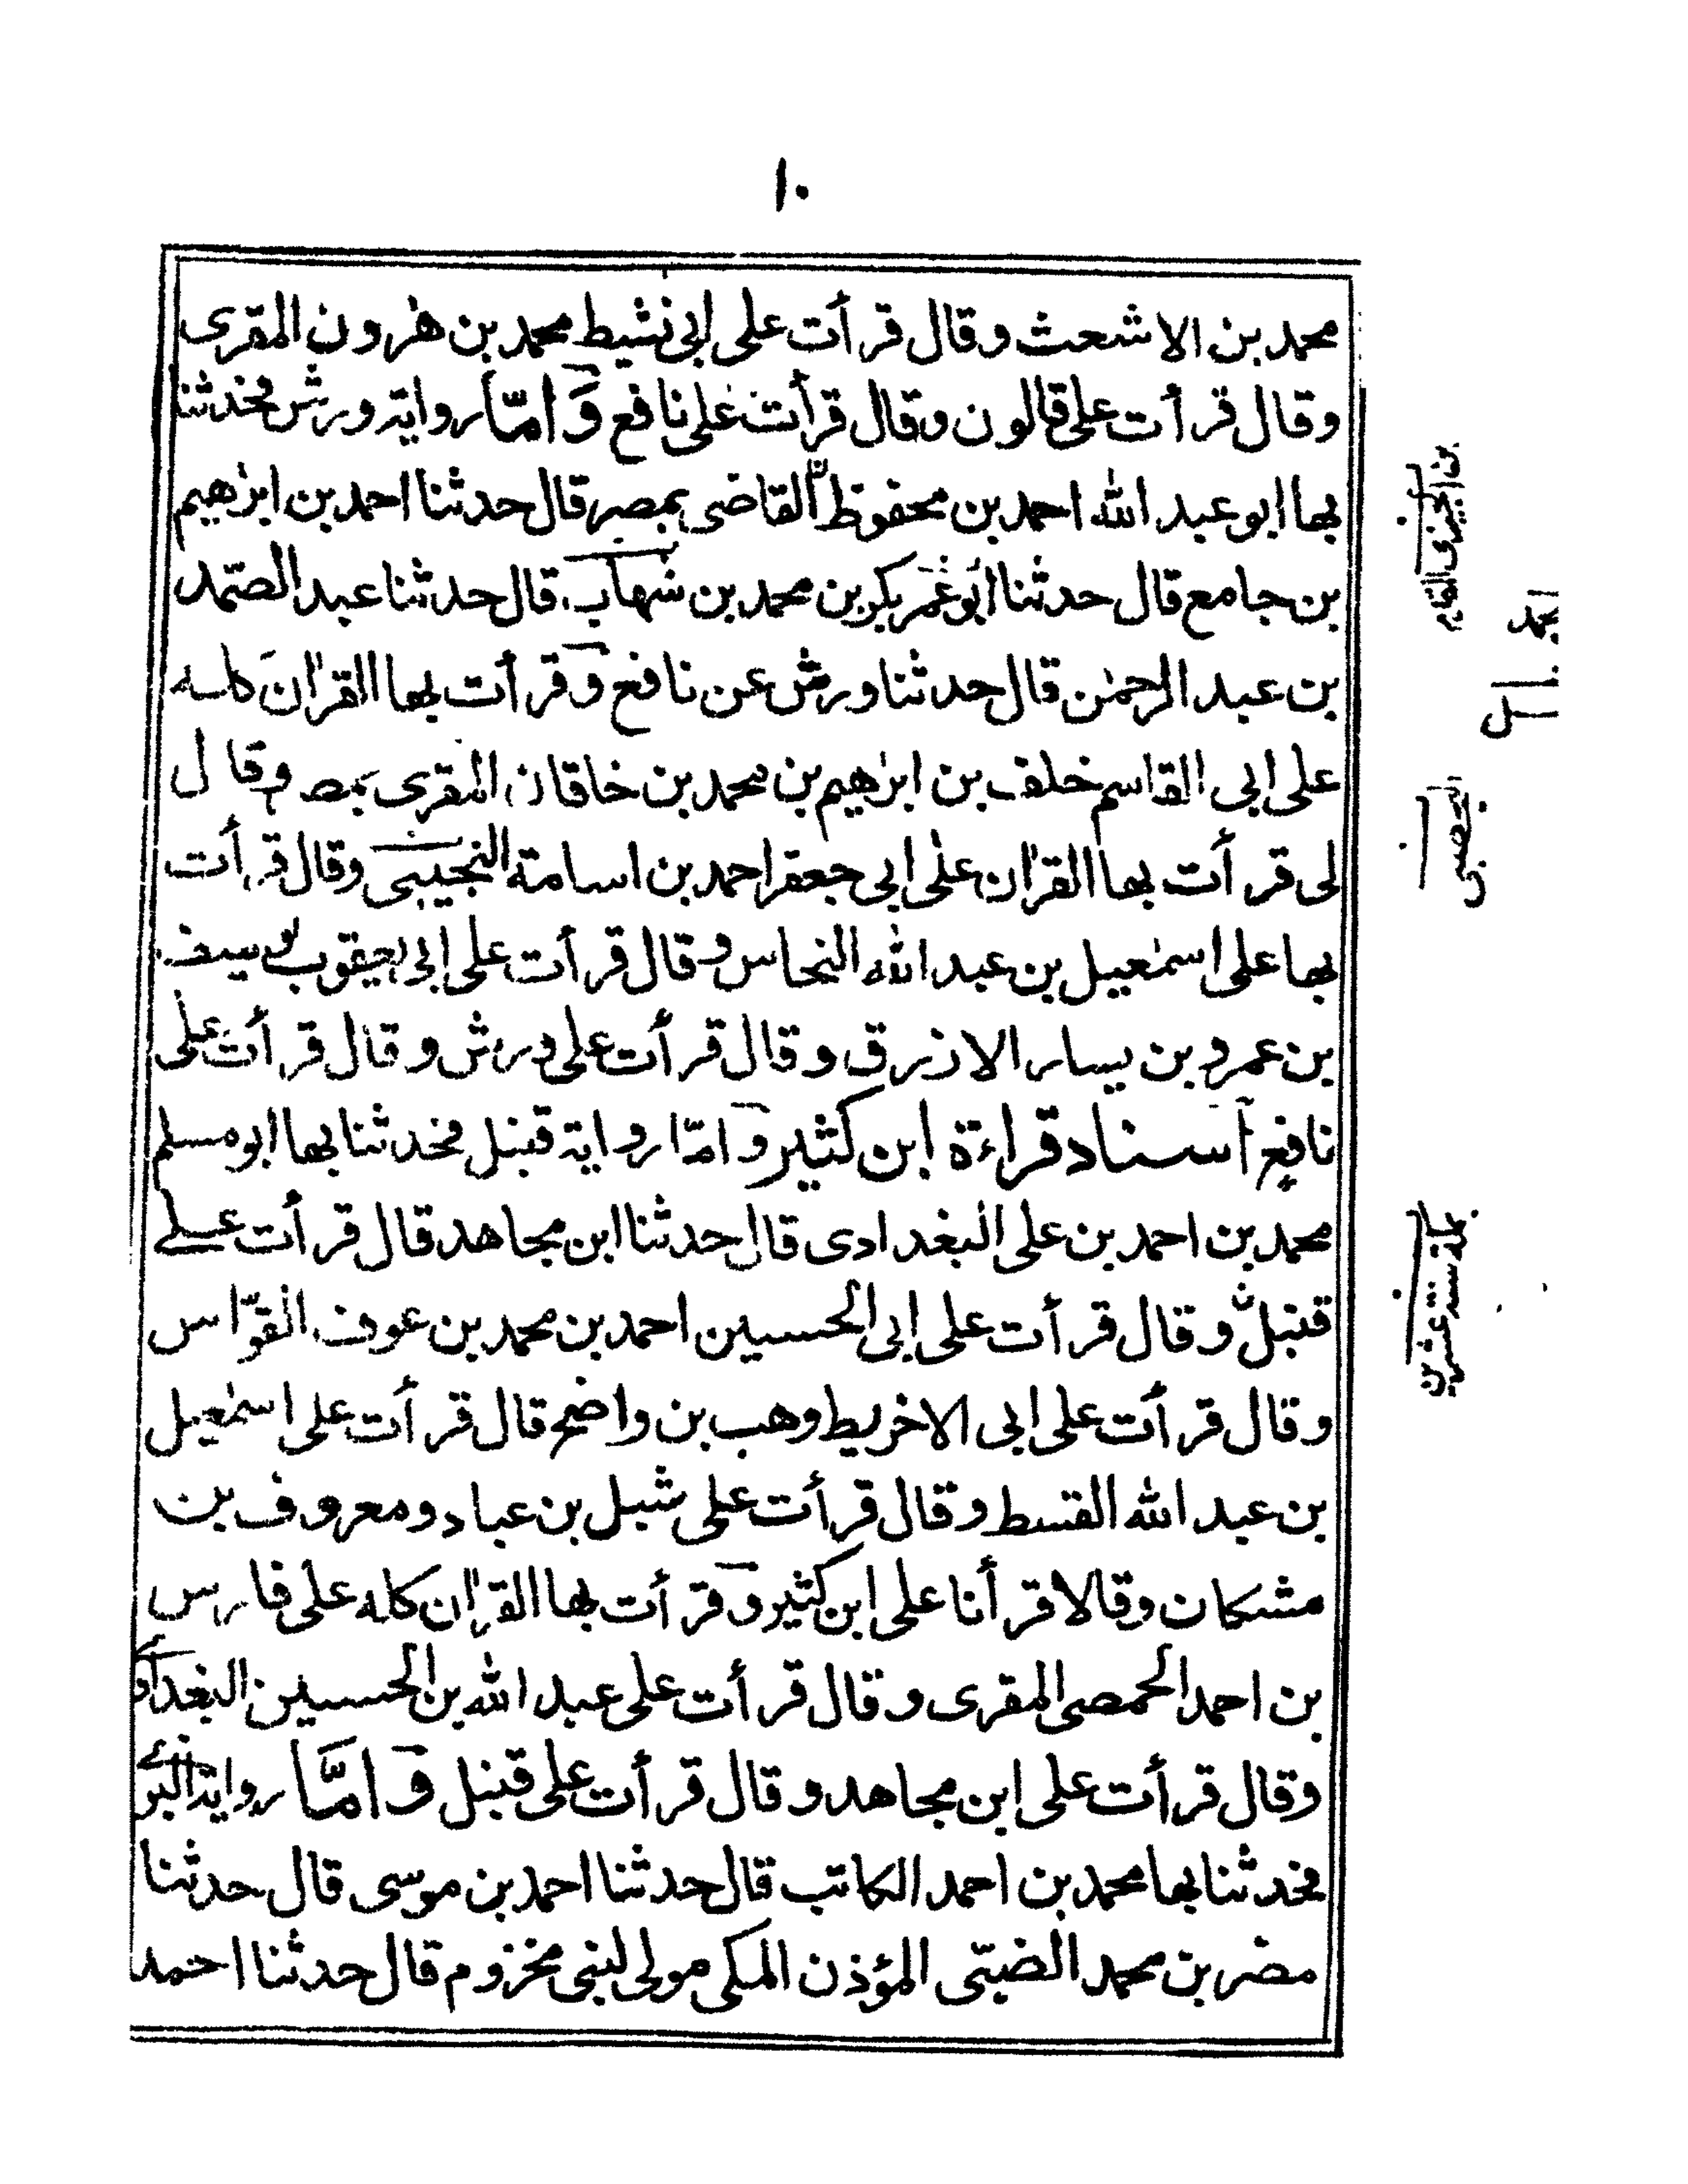 ١٠
محمد بن الاشعث وقال قرأت على ابى نشيط محمد بن هٰرون المقرى
وقال قرأت على قالون وقال قرأت على نافع وَامّا رواية ورش فحدثنا
بها ابو عبد الله احمد بن محفوظ القاضى بمصر قال حدثنا احمد بن ابرٰهيم
بن جامع قال حدثنا ابو بكر بن محمد بن شهاب قال حدثنا عبد الصّمد
بن عبد الرحمٰن قال حدثنا ورش عن نافع وقرأت بها القرٰان كله
على ابى القاسم خلف بن ابرٰهيم بن محمد بن خاقان المقرى بمصر وقال
لى قرأت بها القرٰان على ابى جعفر احمد بن اسامة التجيبى وقال قرأت
بها على اسمٰعيل بن عبد الله النحاس وقال قرأت على ابى يعقوب يوسف
بن عمرو بن يسار الازرق وقال قرأت على ورش وقال قرأت على
نافع اسناد قراءة ابن كثير وامّا رواية قنبل فحدثنا بها ابو مسلم
محمد بن احمد بن على البغدادى قال حدثنا ابن مجاهد قال قرأت على
قنبل وقال قرأت على ابى الحسين احمد بن محمد بن عوف القوّاس
وقال قرأت على ابى الاخريط وهب بن واضح قال قرأت على اسمٰعيل
بن عبد الله القسط وقال قرأت على شبل بن عباد ومعروف بن
مشكان وقالا قرأنا على ابن كثير وقرأت بها القرٰان كله على فارس
بن احمد الحمصى المقرى وقال قرأت على عبد الله بن الحسين البغدادى
وقال قرأت على ابن مجاهد وقال قرأت على قنبل وَامَّا رواية البزى
فحدثنا بها محمد بن احمد الكاتب قال حدثنا احمد بن موسى قال حدثنا
مضر بن محمد الضبّى المؤذن المكى مولى لبنى مخزوم قال حدثنا احمد